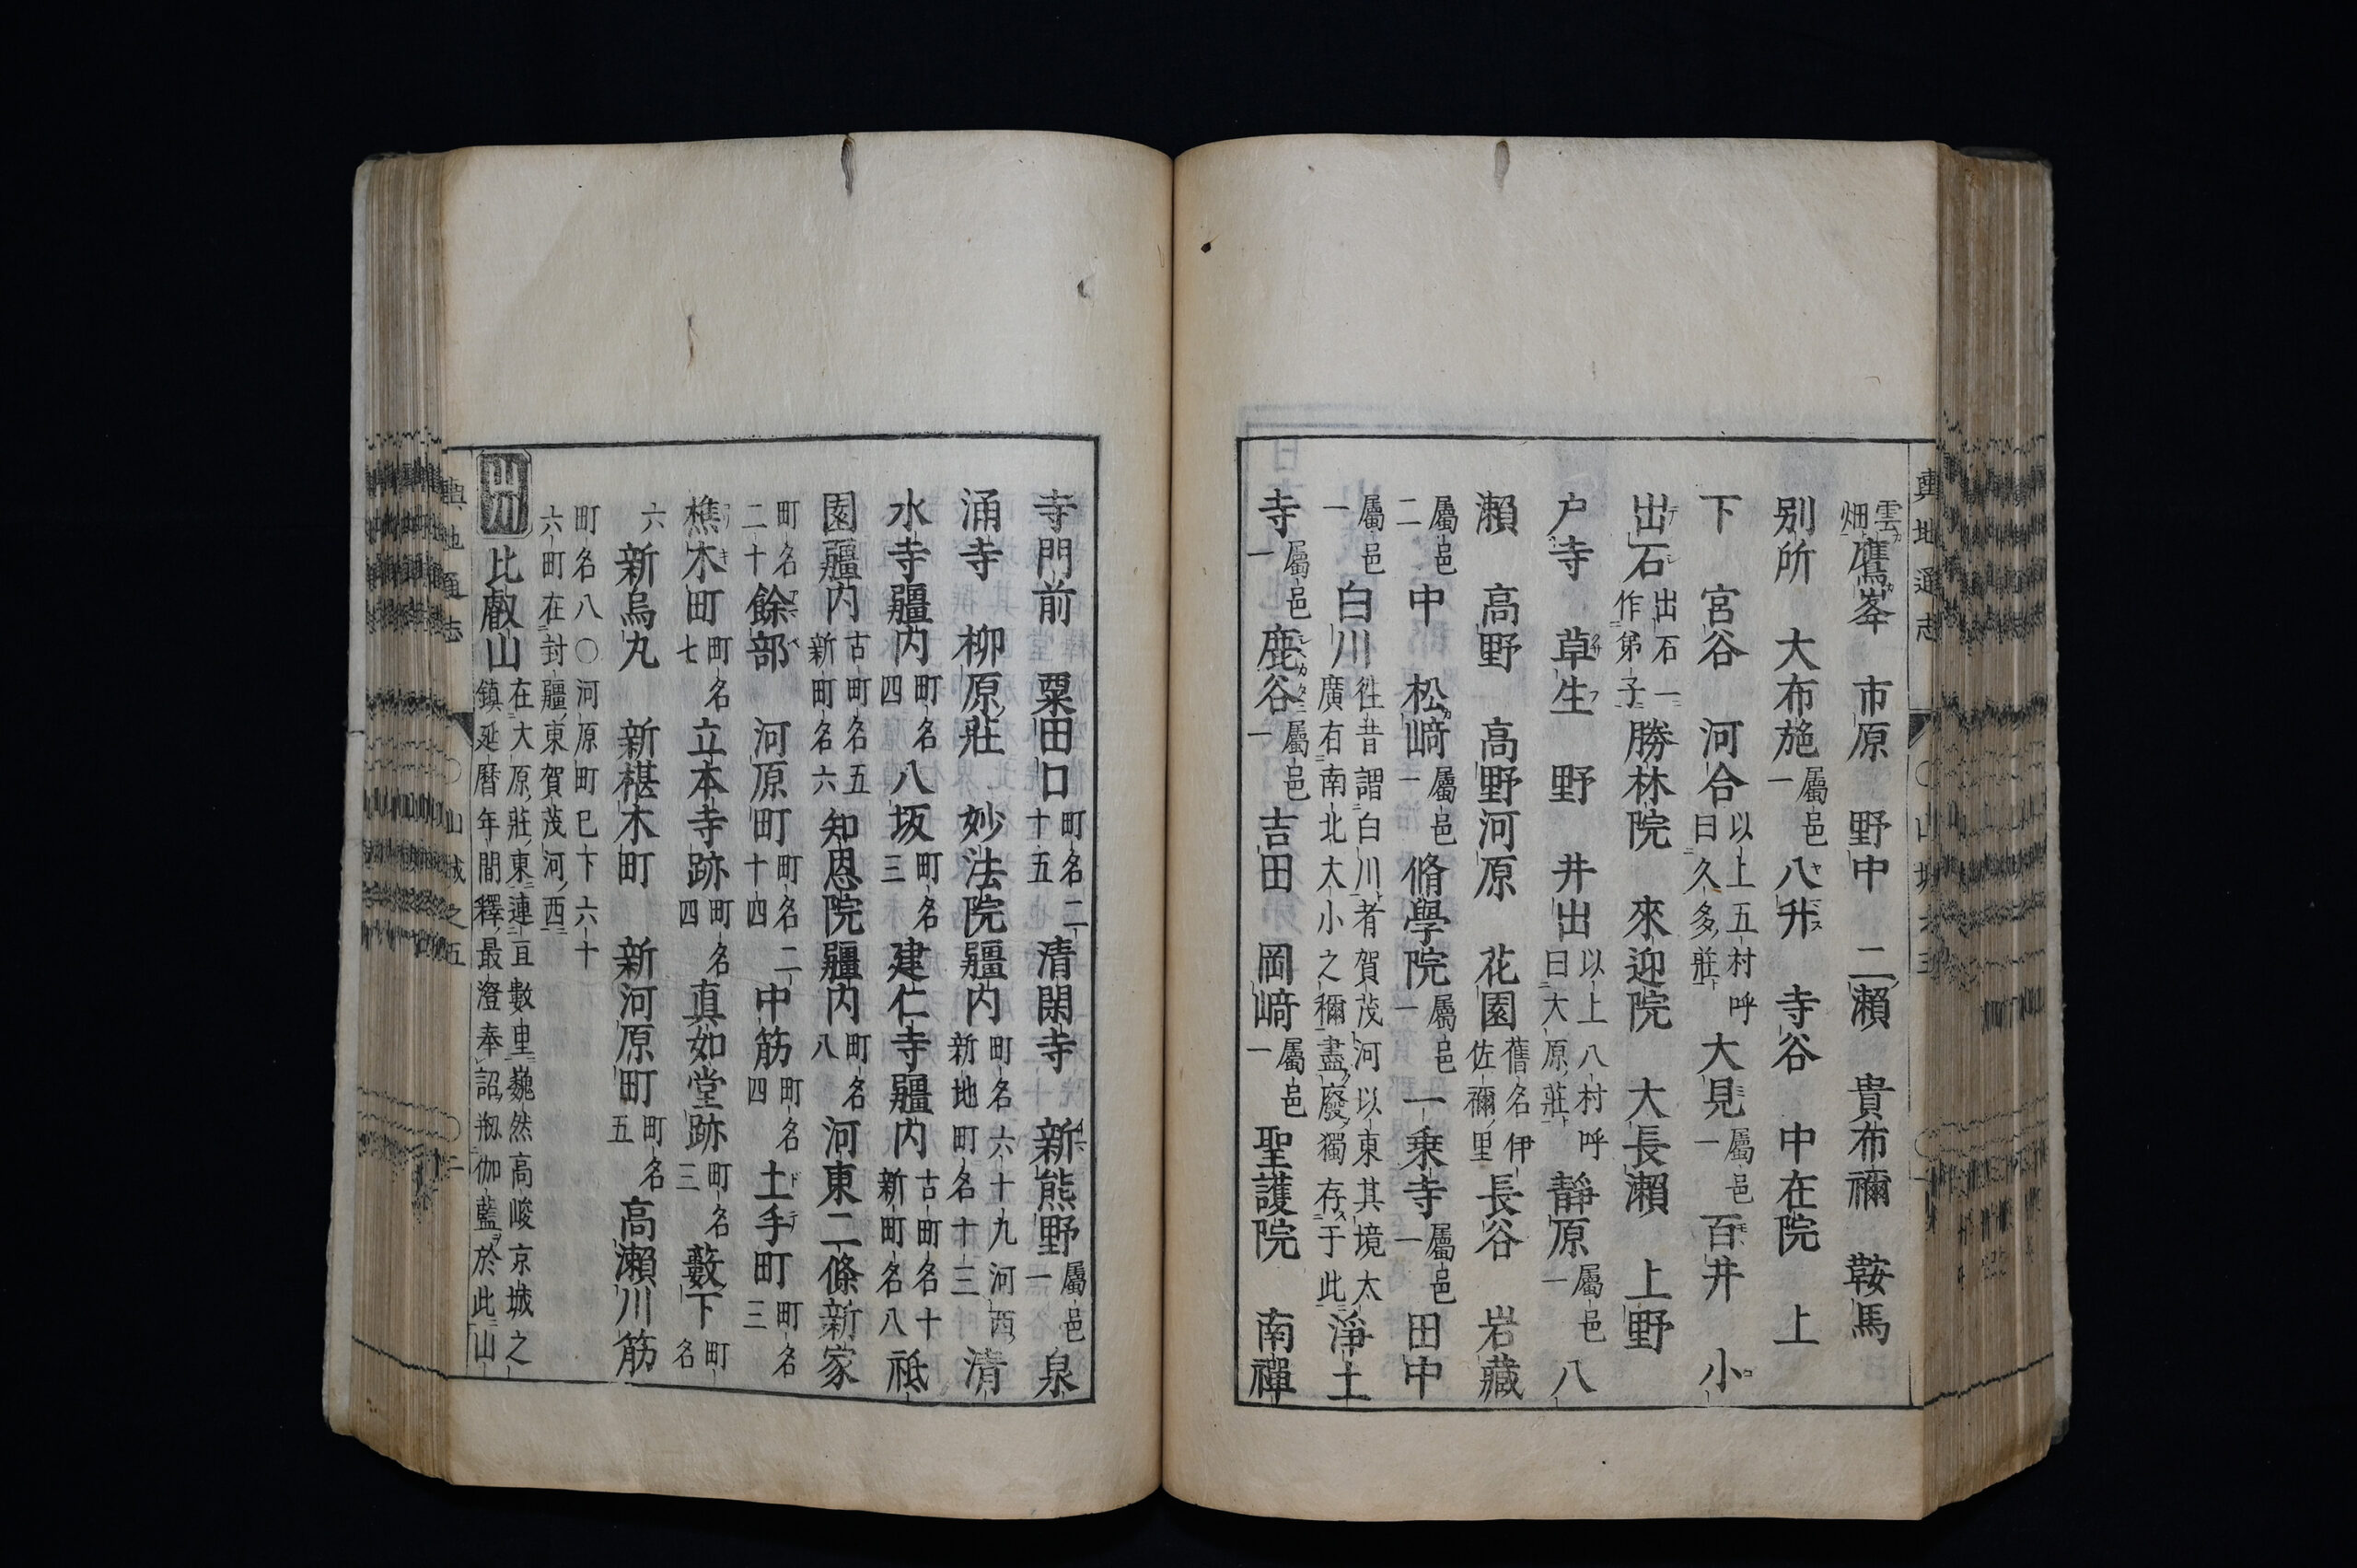 雲畑 鷹峯 市原 野中 二瀬 貴布禰 鞍馬
別所 大布施屬邑一 八升 寺谷 中在院 上
下 宮谷 河合以上五村呼曰久多莊 大見屬邑一 百井 小
出石出石一作弟子 勝林院 來迎院 大長瀬 上野
户寺 草生 野 井出以上八村呼曰大原莊 靜原屬邑一 八
瀬 高野 高野河原 花園舊名伊佐禰里 長谷 岩藏
屬邑二 中 松﨑屬邑一 脩學院屬邑一 一乗寺屬邑一 田中
屬邑一 白川徃昔謂白川者賀茂河以東其境太廣有南北大小之禰盡廢獨存于此 淨土
寺屬邑一 鹿谷屬邑一 吉田 岡﨑屬邑一 聖護院 南禪
寺門前 粟田口町名二十五 清閑寺 新熊野屬邑一 泉
涌寺 柳原莊 妙法院疆内町名六十九河西新地町名十三 清
水寺疆内町名四 八坂町名三 建仁寺疆内古町名十新町名八 祇
園疆内古町名五新町名六 知恩院疆内町名八 河東二條新家
町名二十 餘部 河原町町名二十四 中筋町名四 土手町町名三
樵木町町名七 立本寺跡町名四 真如堂跡町名三 藪下町名
六 新烏丸 新椹木町 新河原町町名五 高瀬川筋
町名八〇河原町已下六十六町在封疆東賀茂河西
山 比叡山在大原莊東連亙數里巍然高峻京城之鎮延暦年間釋最澄奉詔剏伽藍於此山
輿地通志 〇山城之五 〇二
輿地通志 〇山城